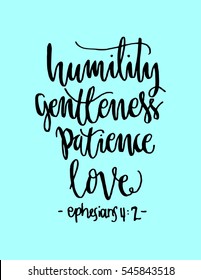 humility
gentleness
patience
love
- ephesians 4:2 -
shutterstock.com · 545843518